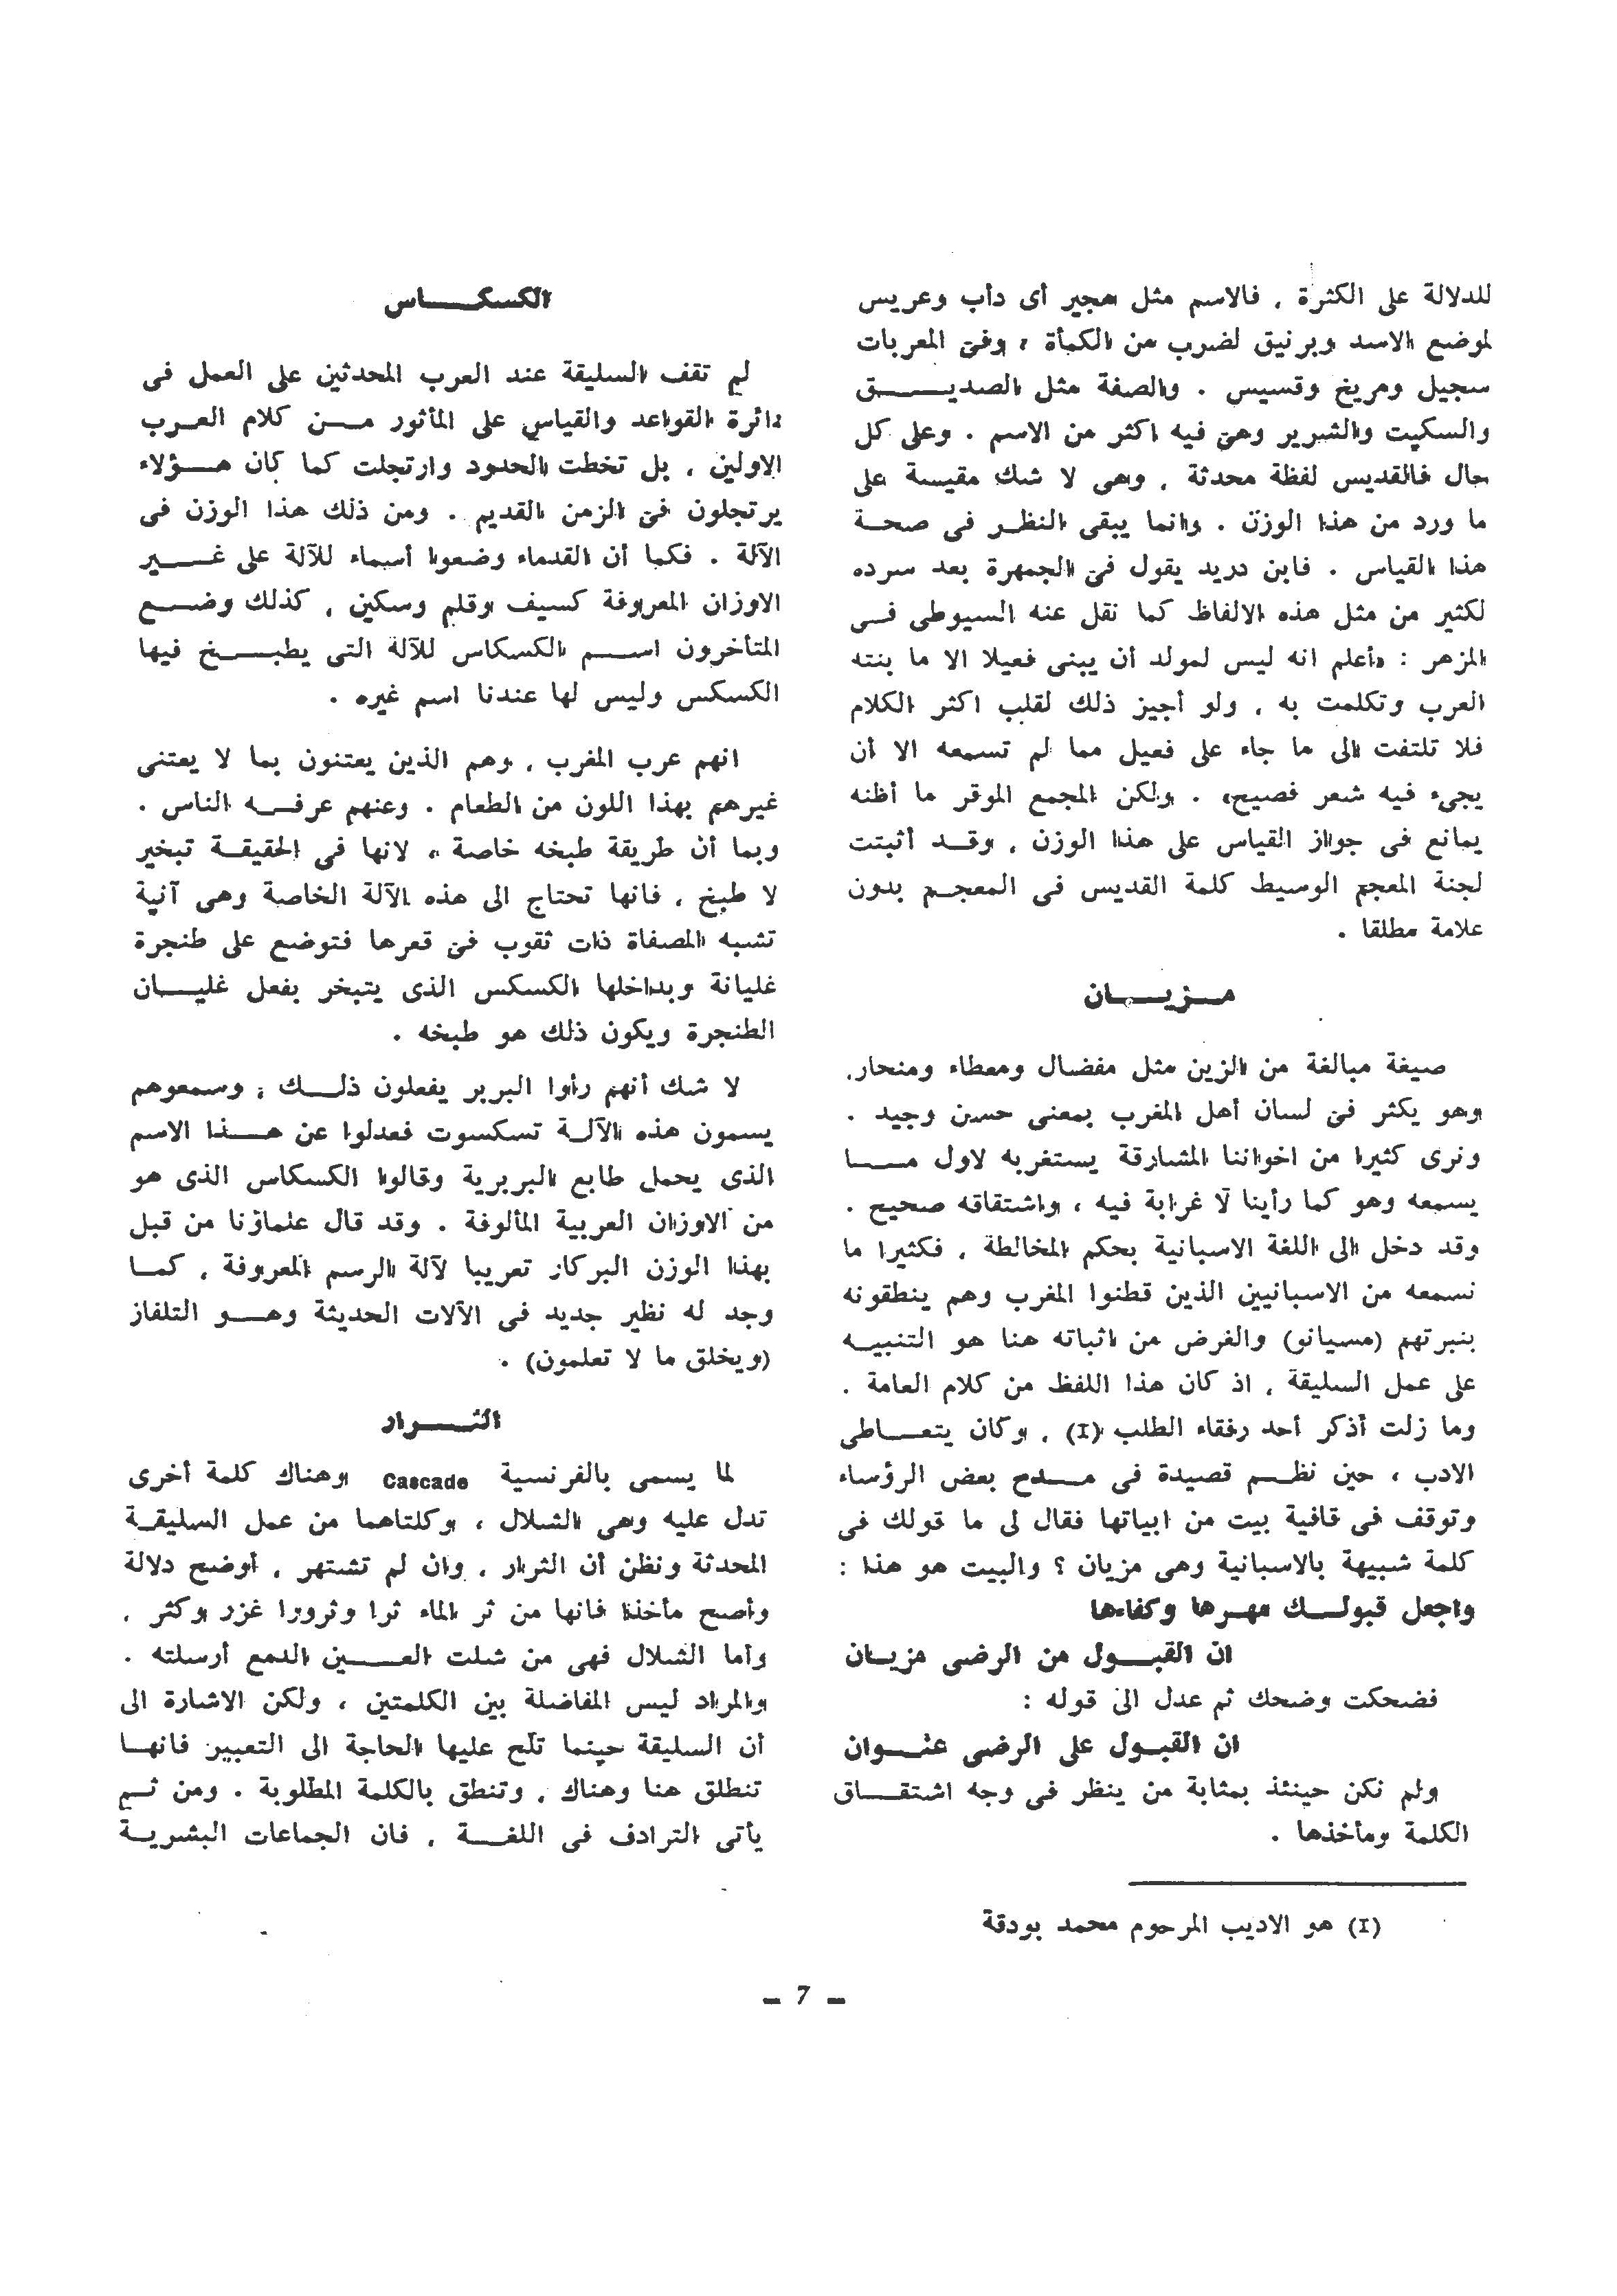 للدلالة على الكثرة ، فالاسم مثل هجير أى دأب وعريس
لموضع الاسد وبرنيق لضرب من الكمأة ، وفى المعربات
سجيل ومريخ وقسيس . والصفة مثل الصديق
والسكيت والشرير وهى فيه اكثر من الاسم . وعلى كل
حال فالقديس لفظة محدثة ، وهى لا شك مقيسة على
ما ورد من هذا الوزن . وانما يبقى النظر فى صحة
هذا القياس . فابن دريد يقول فى الجمهرة بعد سرده
لكثير من مثل هذه الالفاظ كما نقل عنه السيوطى فى
المزهر : «أعلم انه ليس لمولد أن يبنى فعيلا الا ما بنته
العرب وتكلمت به ، ولو أجيز ذلك لقلب اكثر الكلام
فلا تلتفت الى ما جاء على فعيل مما لم تسمعه الا أن
يجىء فيه شعر فصيح» . ولكن المجمع الموقر ما أظنه
يمانع فى جواز القياس على هذا الوزن ، وقد أثبتت
لجنة المعجم الوسيط كلمة القديس فى المعجم بدون
علامة مطلقا .
مزيان
صيغة مبالغة من الزين مثل مفضال ومعطاء ومنحار،
وهو يكثر فى لسان أهل المغرب بمعنى حسن وجيد .
ونرى كثيرا من اخواننا المشارقة يستغربه لاول ما
يسمعه وهو كما رأينا لا غرابة فيه ، واشتقاقه صحيح .
وقد دخل الى اللغة الاسبانية بحكم المخالطة ، فكثيرا ما
نسمعه من الاسبانيين الذين قطنوا المغرب وهم ينطقونه
بنبرتهم (مسيانو) والغرض من اثباته هنا هو التنبيه
على عمل السليقة ، اذ كان هذا اللفظ من كلام العامة .
وما زلت أذكر أحد رفقاء الطلب (I) ، وكان يتعاطى
الادب ، حين نظم قصيدة فى مدح بعض الرؤساء
وتوقف فى قافية بيت من ابياتها فقال لى ما قولك فى
كلمة شبيهة بالاسبانية وهى مزيان ؟ والبيت هو هذا :
واجعل قبولك مهرها وكفاءها
ان القبول من الرضى مزيان
فضحكت وضحك ثم عدل الى قوله :
ان القبول على الرضى عنوان
ولم نكن حينئذ بمثابة من ينظر فى وجه اشتقاق
الكلمة ومأخذها .
(I) هو الاديب المرحوم محمد بودقة
الكسكاس
لم تقف السليقة عند العرب المحدثين على العمل فى
دائرة القواعد والقياس على المأثور من كلام العرب
الاولين ، بل تخطت الحدود وارتجلت كما كان هؤلاء
يرتجلون فى الزمن القديم . ومن ذلك هذا الوزن فى
الآلة . فكما أن القدماء وضعوا أسماء للآلة على غير
الاوزان المعروفة كسيف وقلم وسكين ، كذلك وضع
المتأخرون اسم الكسكاس للآلة التى يطبخ فيها
الكسكس وليس لها عندنا اسم غيره .
انهم عرب المغرب ، وهم الذين يعتنون بما لا يعتنى
غيرهم بهذا اللون من الطعام . وعنهم عرفه الناس .
وبما أن طريقة طبخه خاصة ، لانها فى الحقيقة تبخير
لا طبخ ، فانها تحتاج الى هذه الآلة الخاصة وهى آنية
تشبه المصفاة ذات ثقوب فى قعرها فتوضع على طنجرة
غليانة وبداخلها الكسكس الذى يتبخر بفعل غليان
الطنجرة ويكون ذلك هو طبخه .
لا شك أنهم رأوا البربر يفعلون ذلك ، وسمعوهم
يسمون هذه الآلة تسكسوت فعدلوا عن هذا الاسم
الذى يحمل طابع البربرية وقالوا الكسكاس الذى هو
من الاوزان العربية المألوفة . وقد قال علماؤنا من قبل
بهذا الوزن البركار تعريبا لآلة الرسم المعروفة ، كما
وجد له نظير جديد فى الآلات الحديثة وهو التلفاز
(ويخلق ما لا تعلمون) .
الثرار
لما يسمى بالفرنسية Cascade وهناك كلمة أخرى
تدل عليه وهى الشلال ، وكلتاهما من عمل السليقة
المحدثة ونظن أن الثرار ، وان لم تشتهر ، أوضح دلالة
وأصح مأخذا فانها من ثر الماء ثرا وثرورا غزر وكثر ،
وأما الشلال فهى من شلت العين الدمع أرسلته .
والمراد ليس المفاضلة بين الكلمتين ، ولكن الاشارة الى
أن السليقة حينما تلح عليها الحاجة الى التعبير فانها
تنطلق هنا وهناك ، وتنطق بالكلمة المطلوبة . ومن ثم
يأتى الترادف فى اللغة ، فان الجماعات البشرية
– 7 –